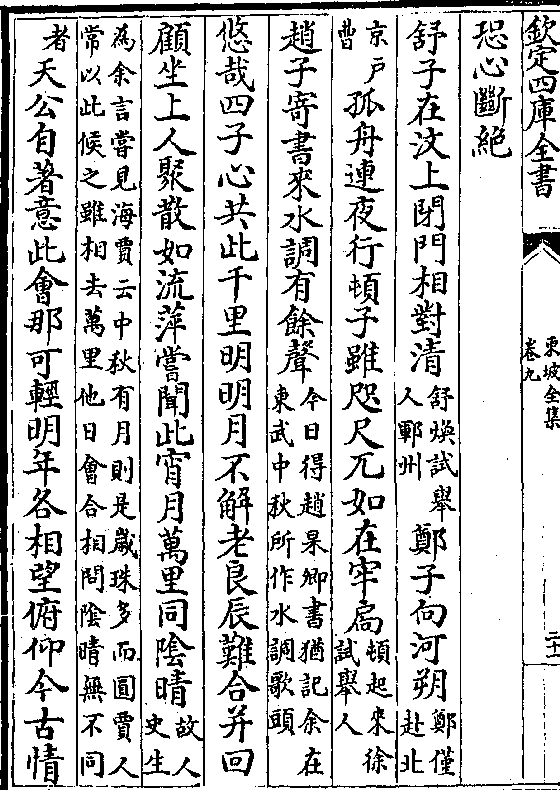 欽定四庫全書
東坡全集
卷九
二十一
恐心斷絶
舒子在汶上閉門相對清舒煥試舉人鄆州鄭子向河朔鄭僅赴北
京戸曹孤舟連夜行頓子雖咫尺兀如在牢扃頓起來徐試舉人
趙子寄書來水調有餘聲今日得趙杲卿書猶記余在東武中秋所作水調歌頭
悠哉四子心共此千里明明月不解老良辰難合并回
顧坐上人聚散如流萍嘗聞此宵月萬里同陰晴故人史生
為余言嘗見海賈云中秋有月則是歲珠多而圓賈人常以此候之雖相去萬里他日會合相問陰晴無不同
者天公自著意此會那可輕明年各相望俯仰今古情